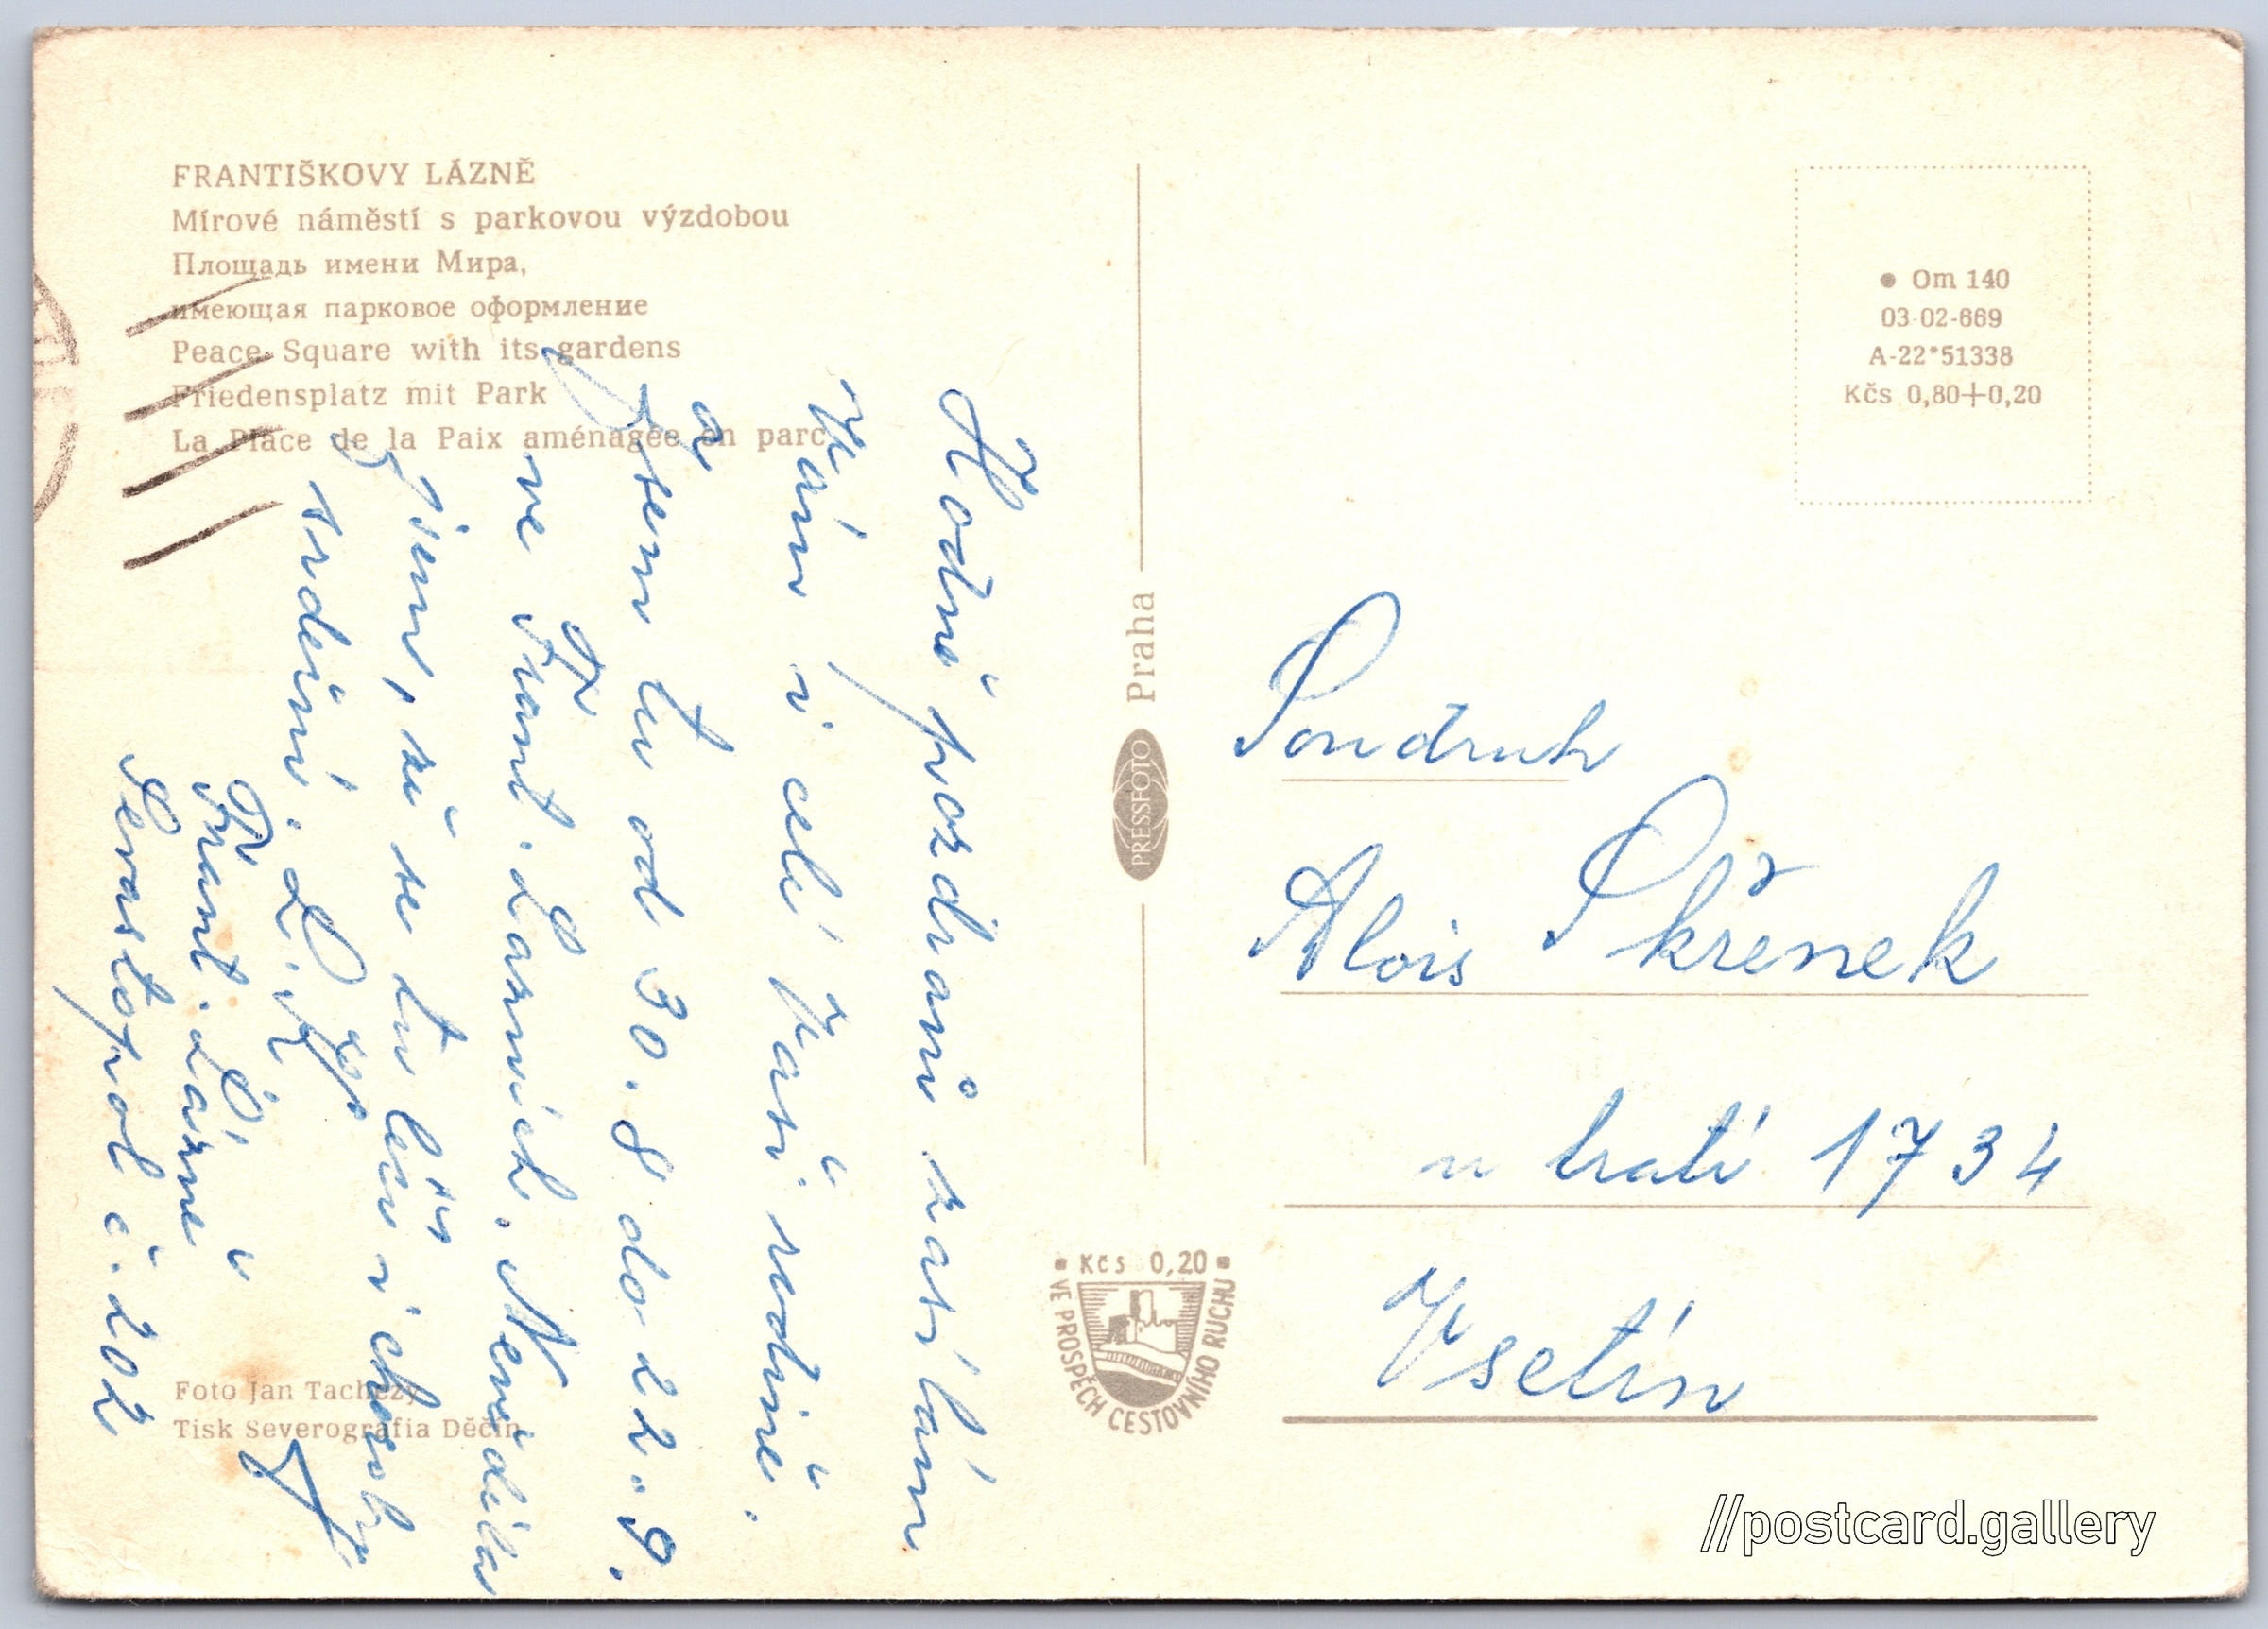 FRANTIŠKOVY LÁZNĚ
Mírové náměstí s parkovou výzdobou
Площадь имени Мира,
имеющая парковое оформление
Peace Square with its gardens
Friedensplatz mit Park
La Place de la Paix aménagée en parc
Hodně pozdravů zasílám
Vám i celé Vaší rodině.
Jsem tu od 30. 8 do 22. 9.
ve Frant. Lázních. Nevěděla
jsem, že se tu léčí i choroby
srdeční.
Frant. Lázně
Sevastopol č. 202
Foto Jan Tachezy
Tisk Severografia Děčín
PRESSFOTO Praha
• Kčs 0,20 •
VE PROSPĚCH CESTOVNÍHO RUCHU
• Om 140
03-02-669
A-22*51338
Kčs 0,80+0,20
Soudruh
Alois Skřenek
u trati 1734
Vsetín
//postcard.gallery